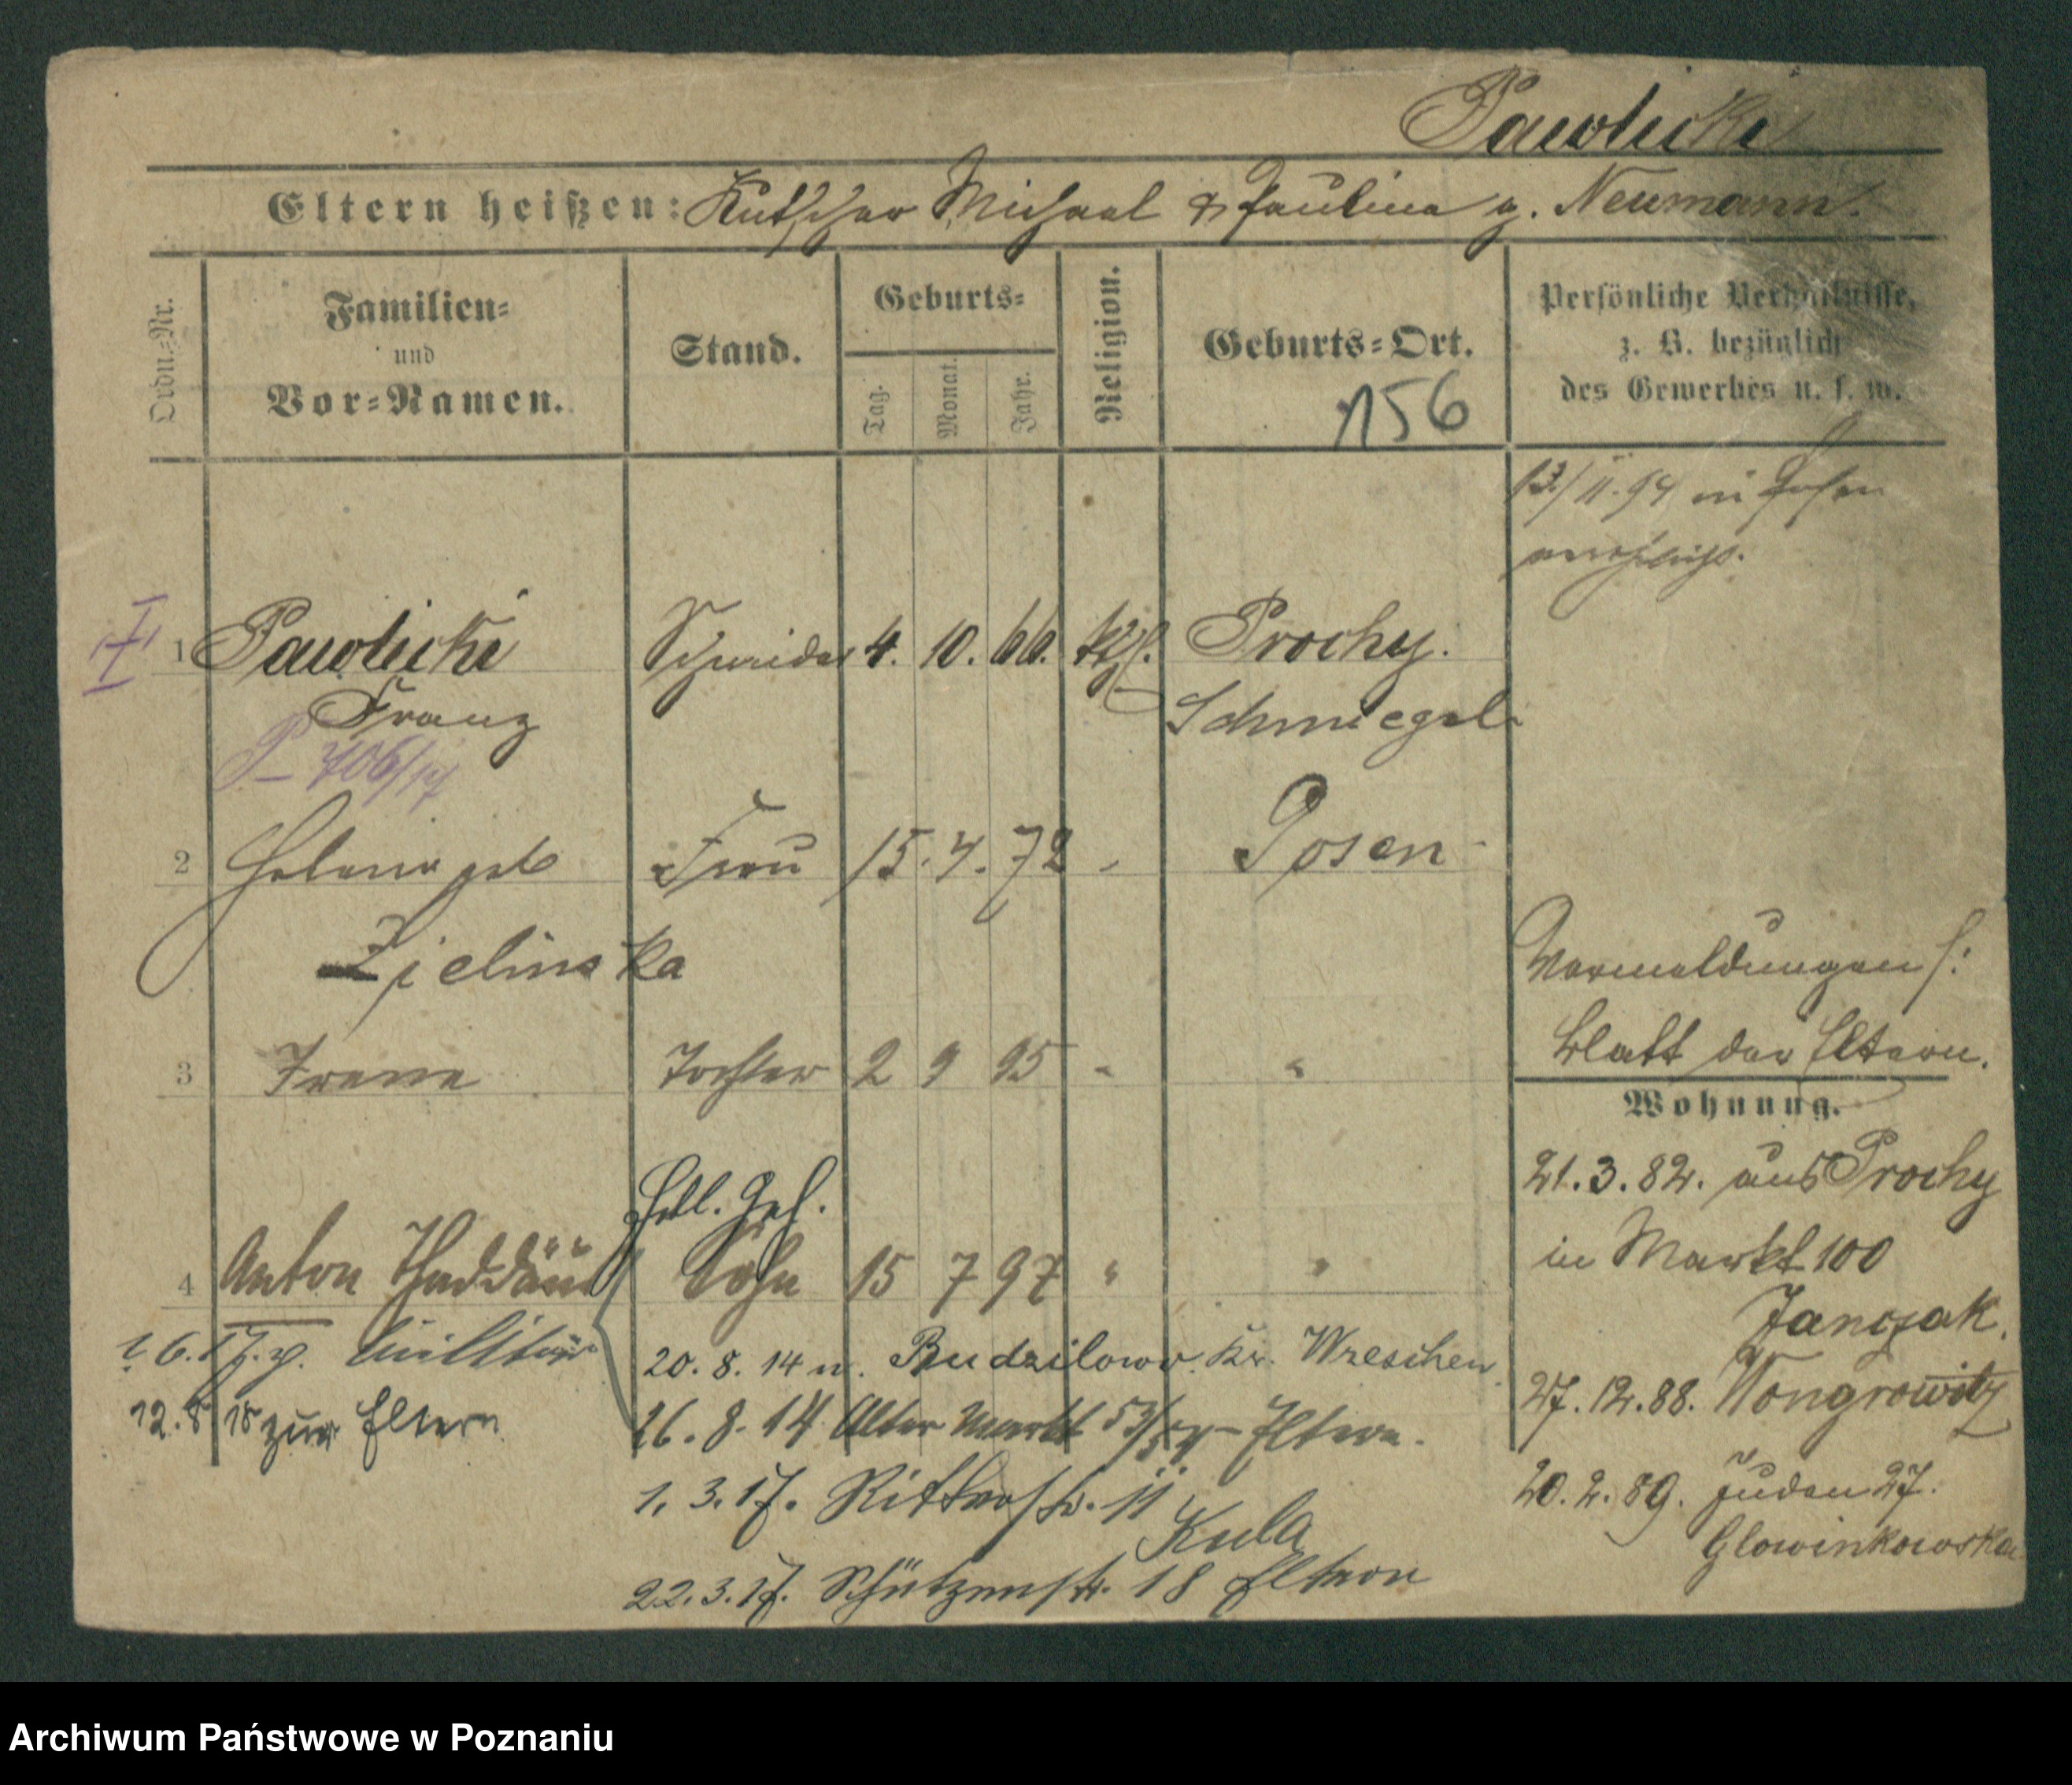 Pawlicki
Eltern heißen: Kutscher Michael & Paulina g. Neumann.
Ordn.=Nr.
Familien=
und
Vor=Namen.
Stand.
Geburts=
Tag.
Monat.
Jahr.
Religion.
Geburts=Ort.
156
Persönliche Verhältnisse,
z. B. bezüglich
des Gewerbes u. s. w.
13/11.94 in Posen
verehelicht.
1 Pawlicki Schneider 4. 10. 66. kth. Prochy.
Franz Schmiegel
P 706/17
2 Helena geb Frau 15. 4. 72 Posen
Zielinska
Vermeldungen s:
Blatt der Eltern.
3 Irene Tochter 2 9 95 " "
Wohnung.
21.3.82. aus Prochy
in Markt 100
Janczak.
27.12.88. Wongrowitz
20.2.89. Juden 27.
Glowinkowska
Hdl. Geh.
4 Anton Thaddäus Sohn 15 7 97 " "
1.6.17. z. Militär
12.8 18 zur Eltern
20.8.14 n. Budzilowo Kr. Wreschen.
26.8.14 Alter Markt 53/54 - Eltern.
1.3.17. Ritterstr. 11
Kula
22.3.17. Schützenstr. 18 Eltern
Archiwum Państwowe w Poznaniu